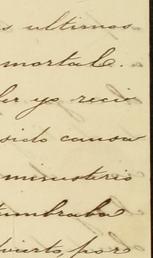 s ultimos
mortal.
ler yo reci
sido causa
ministerio
tumbraba
vierto, por